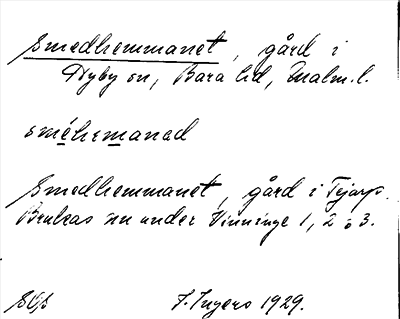 Smedhemmanet, gård i
Dyby sn, Bara hd, Malm. l.
smèhemanad
Smedhemmanet, gård i Tejarp.
Brukas nu under Vinninge 1, 2 o 3.
I. Ingers 1929.